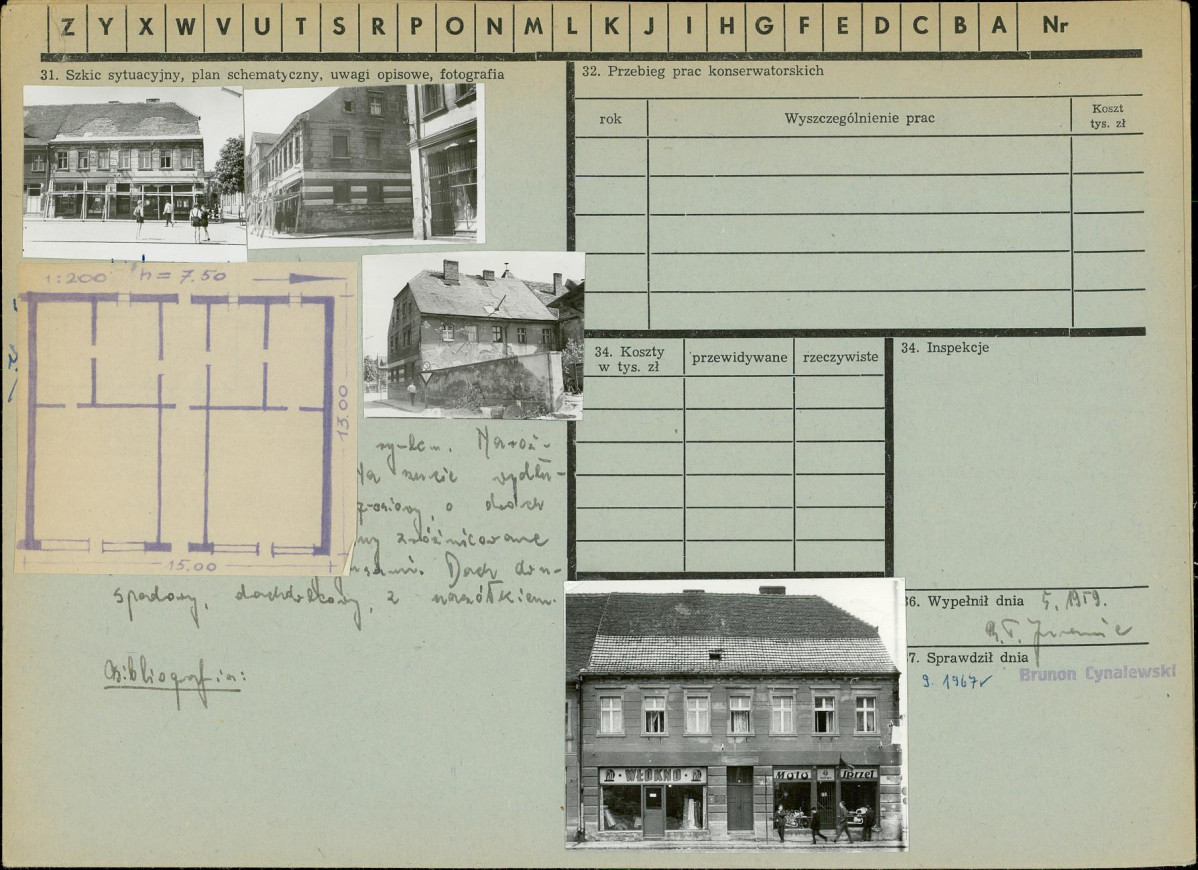 Z Y X W V U T S R P O N M L K J I H G F E D C B A Nr
31. Szkic sytuacyjny, plan schematyczny, uwagi opisowe, fotografia
1:200 h = 7.50
13.00
15.00
Naroż-
Na rzucie wydłu-
o dwóch
zróżnicowane
Dach dwu-
spadowy, dachówkowy, z naczółkiem.
Bibliografia:
32. Przebieg prac konserwatorskich
rok Wyszczególnienie prac Koszt
tys. zł
34. Koszty
w tys. zł przewidywane rzeczywiste
34. Inspekcje
36. Wypełnił dnia 5. 1959.
37. Sprawdził dnia
9. 1967r Brunon Cynalewski
WŁÓKNO
Moto Sprzęt